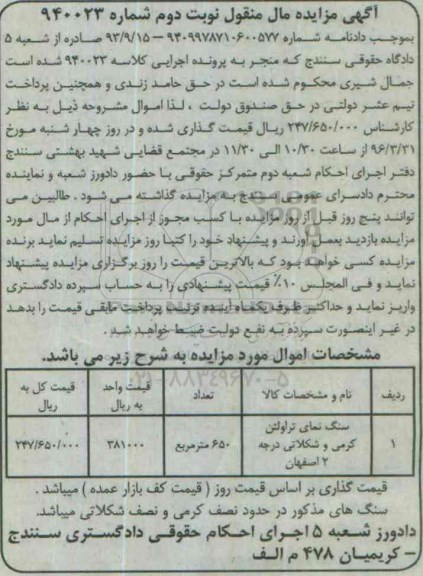 آگهی مزایده مال منقول نوبت دوم شماره ۹۴۰۰۲۳
بموجب دادنامه شماره ۹۴۰۹۹۷۸۷۱۰۶۰۰۵۷۷ – ۹۳/۹/۱۵ صادره از شعبه ۵
دادگاه حقوقی سنندج که منجر به پرونده اجرایی کلاسه ۹۴۰۰۲۳ شده است
جمال شیری محکوم شده است در حق حامد زندی و همچنین پرداخت
نیم عشر دولتی در حق صندوق دولت ، لذا اموال مشروحه ذیل به نظر
کارشناس ۲۴۷/۶۵۰/۰۰۰ ریال قیمت گذاری شده و در روز چهار شنبه مورخ
۹۶/۳/۳۱ از ساعت ۱۰/۳۰ الی ۱۱/۳۰ در مجتمع قضایی شهید بهشتی سنندج
دفتر اجرای احکام شعبه دوم متمرکز حقوقی با حضور دادورز شعبه و نماینده
محترم دادسرای عمومی سنندج به مزایده گذاشته می شود . طالبین می
توانند پنج روز قبل از روز مزایده با کسب مجوز از اجرای احکام از مال مورد
مزایده بازدید بعمل آورند و پیشنهاد خود را کتبا روز مزایده تسلیم نماید برنده
مزایده کسی خواهد بود که بالاترین قیمت را روز برگزاری مزایده پیشنهاد
نماید و فی المجلس ۱۰٪ قیمت پیشنهادی را به حساب سپرده دادگستری
واریز نماید و حداکثر ظرف یکماه آینده ترتیب پرداخت مابقی قیمت را بدهد
در غیر اینصورت سپرده به نفع دولت ضبط خواهد شد .
مشخصات اموال مورد مزایده به شرح زیر می باشد.
ردیف نام و مشخصات کالا تعداد قیمت واحد به ریال قیمت کل به ریال
۱ سنگ نمای تراولتن کرمی و شکلاتی درجه ۲ اصفهان ۶۵۰ مترمربع ۳۸۱۰۰۰ ۲۴۷/۶۵۰/۰۰۰
قیمت گذاری بر اساس قیمت روز ( قیمت کف بازار عمده ) میباشد .
سنگ های مذکور در حدود نصف کرمی و نصف شکلاتی میباشد.
دادورز شعبه ۵ اجرای احکام حقوقی دادگستری سنندج
– کریمیان ۴۷۸ م الف